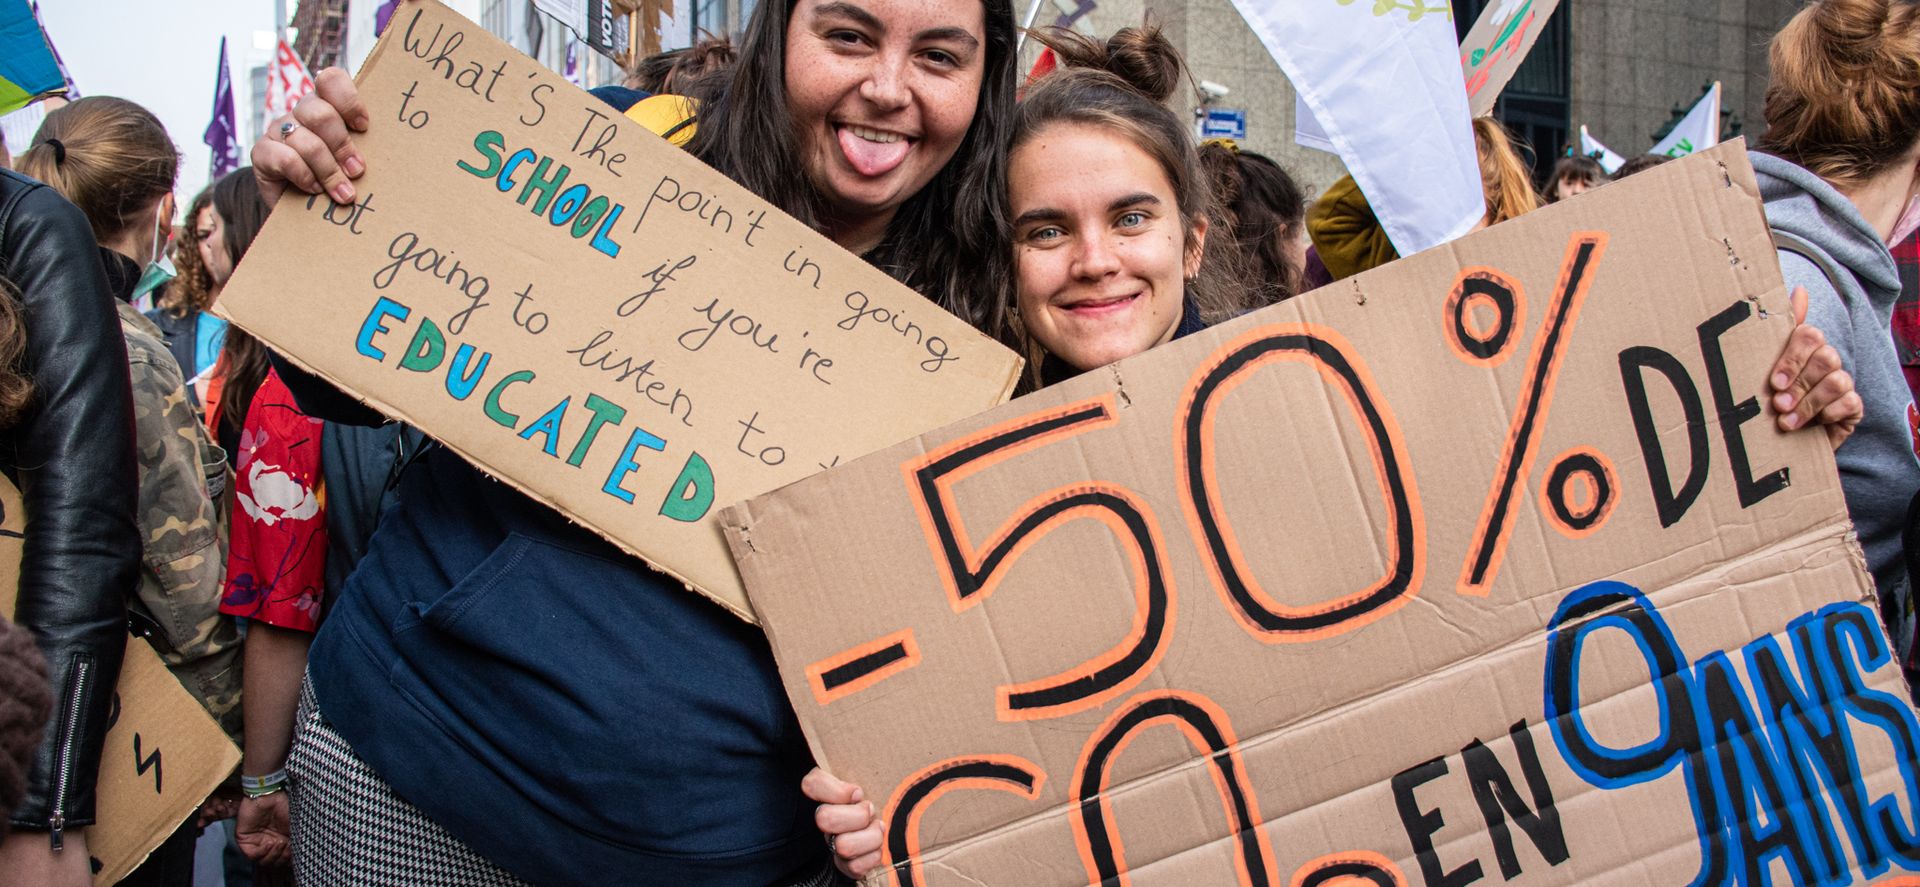 What's The poin't in going
to SCHOOL if you're
not going to listen to
EDUCATED
-50% DE
CO
EN 9ANS
VOT